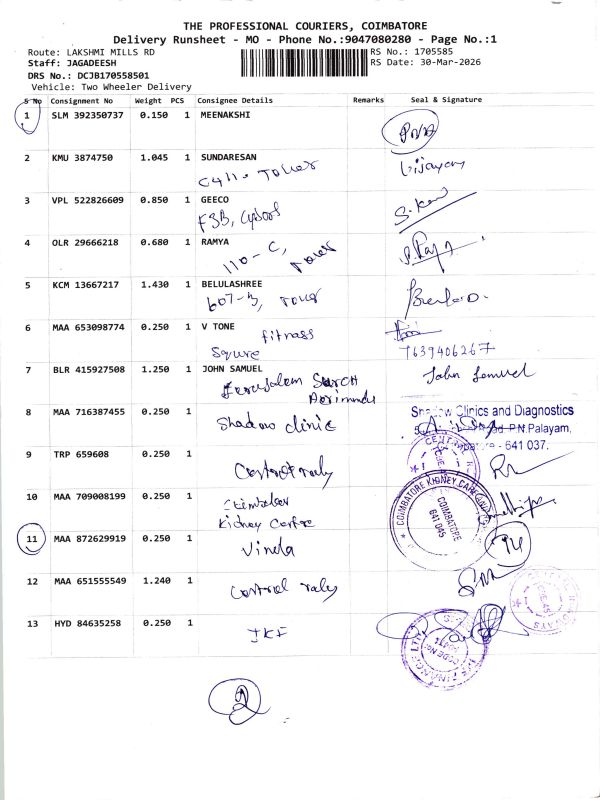 THE PROFESSIONAL COURIERS, COIMBATORE
Delivery Runsheet - MO - Phone No.:9047080280 - Page No.:1
Route: LAKSHMI MILLS RD
RS No.: 1705585
Staff: JAGADEESH
RS Date: 30-Mar-2026
DRS No.: DCJB170558501
Vehicle: Two Wheeler Delivery
S No Consignment No Weight PCS Consignee Details Remarks Seal & Signature
1 SLM 392350737 0.150 1 MEENAKSHI
2 KMU 3874750 1.045 1 SUNDARESAN
Tower
3 VPL 522826609 0.850 1 GEECO
F3B,
4 OLR 29666218 0.680 1 RAMYA
110-C, Tower
5 KCM 13667217 1.430 1 BELULASHREE
607-B, Tower
6 MAA 653098774 0.250 1 V TONE
fitness
Squre
7639406267
7 BLR 415927508 1.250 1 JOHN SAMUEL
John Samuel
Jerusalem
8 MAA 716387455 0.250 1
Shadow clinic
Shadow Clinics and Diagnostics
P.N.Palayam,
- 641 037.
9 TRP 659608 0.250 1
10 MAA 709008199 0.250 1
Kidney Centre
COIMBATORE KIDNEY
COIMBATORE
641 045
11 MAA 872629919 0.250 1
12 MAA 651555549 1.240 1
13 HYD 84635258 0.250 1
2